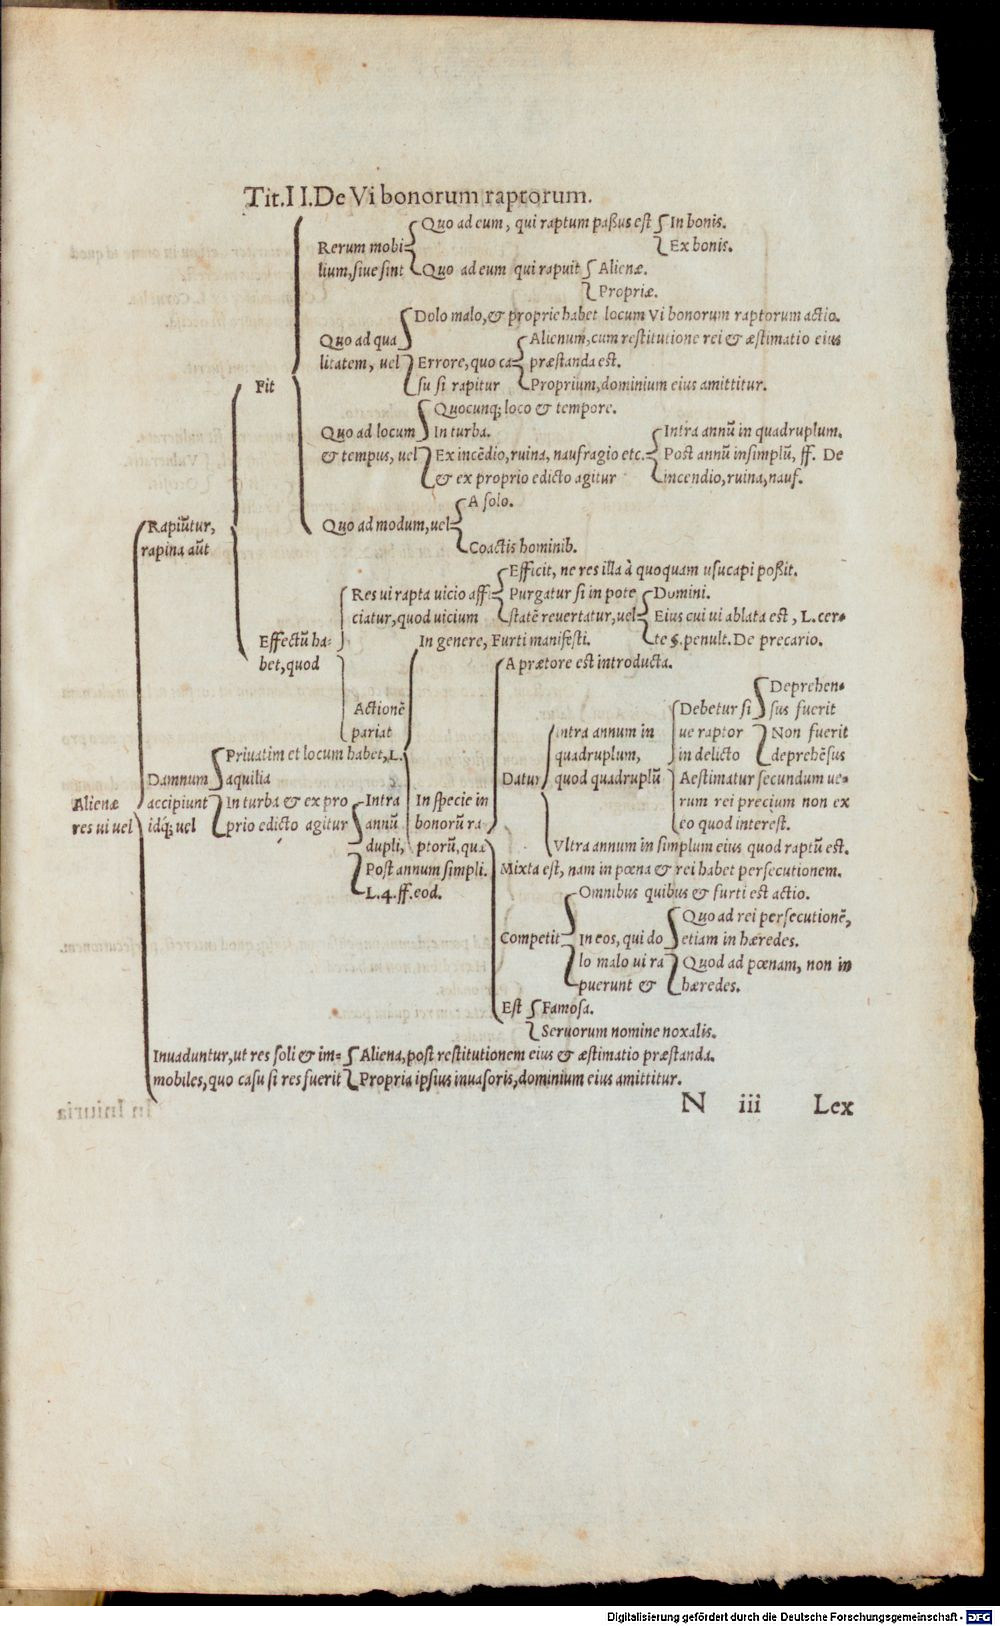 Tit.II.De Vi bonorum raptorum.
Quo ad eum, qui raptum paßus est
In bonis.
Ex bonis.
Rerum mobi
lium, siue sint
Quo ad eum qui rapuit
Alienæ.
Propriæ.
Dolo malo, & proprie habet locum Vi bonorum raptorum actio.
Quo ad qua
litatem, vel
Errore, quo ca
su si rapitur
Alienum, cum restitutione rei & æstimatio eius
præstanda est.
Proprium, dominium eius amittitur.
Fit
Quo ad locum
& tempus, vel
Quocunq; loco & tempore.
In turba.
Ex incēdio, ruina, naufragio etc.
& ex proprio edicto agitur
Intra annū in quadruplum.
Post annū insimplū, ff. De
incendio, ruina, nauf.
Quo ad modum, vel
A solo.
Coactis hominib.
Rapiūtur,
rapina aūt
Effectū ha-
bet, quod
Res vi rapta uicio affi
ciatur, quod uicium
Efficit, ne res illa à quoquam usucapi poßit.
Purgatur si in pote
statē reuertatur, vel
Domini.
Eius cui vi ablata est, L. cer-
te §. penult. De precario.
Actionē
pariat
In genere, Furti manifesti.
In specie in
bonorū ra
ptorū, quæ
A prætore est introducta.
Datur
intra annum in
quadruplum,
quod quadruplū
Debetur si
ue raptor
in delicto
Deprehen-
sus fuerit
Non fuerit
deprehēsus
Aestimatur secundum ue-
rum rei precium non ex
eo quod interest.
Vltra annum in simplum eius quod raptū est.
Mixta est, nam in pœna & rei habet persecutionem.
Competit
Omnibus quibus & furti est actio.
In eos, qui do
lo malo vi ra
puerunt &
Quo ad rei persecutionē,
etiam in hæredes.
Quod ad pœnam, non in
hæredes.
Est
Famosa.
Seruorum nomine noxalis.
Alienæ
res vi vel
Damnum
accipiunt
idq́; vel
Priuatim et locum habet, L.
aquilia
In turba & ex pro
prio edicto agitur
Intra
annū
dupli,
Post annum simpli.
L.4.ff.eod.
Inuaduntur, ut res soli & im-
mobiles, quo casu si res fuerit
Aliena, post restitutionem eius & æstimatio præstanda.
Propria ipsius inuasoris, dominium eius amittitur.
N iii Lex
Digitalisierung gefördert durch die Deutsche Forschungsgemeinschaft - DFG